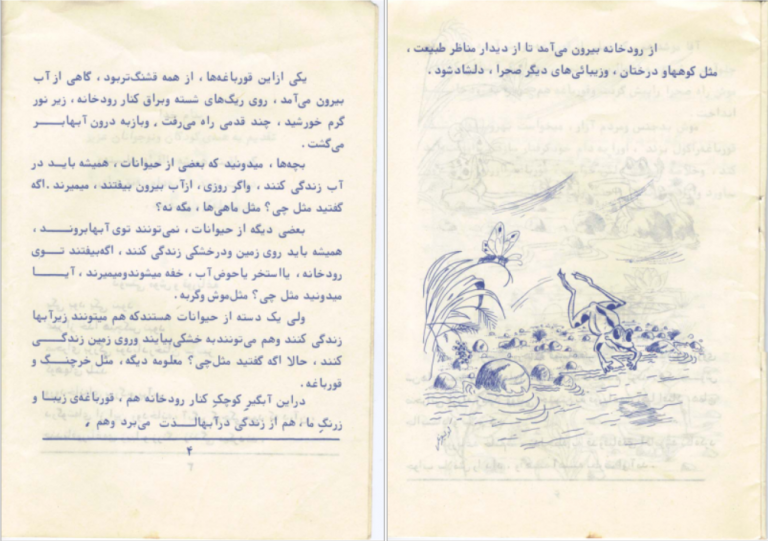 یکی ازاین قورباغه‌ها ، از همه قشنگ‌تربود ، گاهی از آب
بیرون می‌آمد ، روی ریگ‌های شسته وبراق کنار رودخانه ، زیر نور
گرم خورشید ، چند قدمی راه می‌رفت ، وبازبه درون آبهابـــر
می‌گشت .
بچه‌ها ، میدونید که بعضی از حیوانات ، همیشه بایـد در
آب زندگی کنند ، واگر روزی ، ازآب بیرون بیفتند ، میمیرند .اگه
گفتید مثل چی؟ مثل ماهی‌ها ، مگه نه؟
بعضی دیگه از حیوانات ، نمی‌تونند توی آبهابرونــد ،
همیشه باید روی زمین ودرخشکی زندگی کنند ، اگه‌بیفتند تـوی
رودخانه ، یااستخر یاحوض آب ، خفه میشوندومیمیرند ، آیــا
میدونید مثل چی؟ مثل‌موش وگربه .
ولی یک دسته از حیوانات هستندکه هم میتونند زیرآبها
زندگی کنند وهم می‌تونندبه خشکی‌بیایند وروی زمین زندگــی
کنند ، حالا اگه گفتید مثل‌چی؟ معلومه دیگه ، مثل خرچنـگ و
قورباغه .
دراین آبگیر کوچکِ کنار رودخانه هم ، قورباغه‌ی زیبـا و
زرنگِ ما ، هم از زندگی درآبهالــذت می‌برد وهم ،
۴
از رودخانه بیرون می‌آمد تا از دیدار مناظر طبیعت ،
مثل کوههاو درختان ، وزیبائی‌های دیگر صحرا ، دلشادشود .